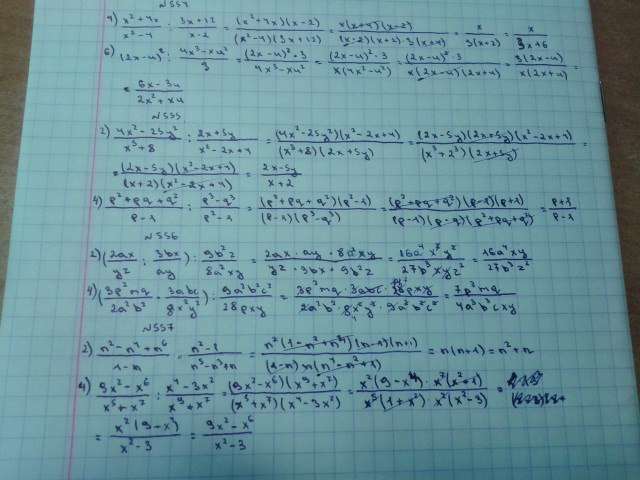 N554
4) (x²+4x)/(x²-4) : (3x+12)/(x-2) = (x²+4x)(x-2)/(x²-4)(3x+12) = x(x+4)(x-2)/(x-2)(x+2)·3(x+4) = x/3(x+2) = x/(3x+6)
6) (2x-y)² : (4x³-xy²)/3 = (2x-y)²·3/(4x³-xy²) = (2x-y)²·3/x(4x²-y²) = (2x-y)²·3/x(2x-y)(2x+y) = 3(2x-y)/x(2x+y) =
= (6x-3y)/(2x²+xy)
N555
2) (4x²-25y²)/(x³+8) : (2x+5y)/(x²-2x+4) = (4x²-25y²)(x²-2x+4)/(x³+8)(2x+5y) = (2x-5y)(2x+5y)(x²-2x+4)/(x³+2³)(2x+5y) =
= (2x-5y)(x²-2x+4)/(x+2)(x²-2x+4) = (2x-5y)/(x+2)
4) (p²+pq+q²)/(p-1) : (p³-q³)/(p²-1) = (p²+pq+q²)(p²-1)/(p-1)(p³-q³) = (p²+pq+q²)(p-1)(p+1)/(p-1)(p-q)(p²+pq+q²) = (p+1)/
N556
2) (2ax/y² : 3bx/ay) : 9b²z/8a²xy = 2ax·ay·8a²xy/y²·3bx·9b²z = 16a⁴x²y²/27b³xyz² = 16a⁴xy/27b³z²
4) (3p²mq/2a²b² · 3abc/8x²y²) : 9a²b²c²/28pxy = 3p²mq·3abc·28pxy/2a²b²·8x²y²·9a²b²c² = 7p³mq/4a³b³cxy
N557
2) (n²-n⁴+n⁶)/(1-n) : = n²(1-n²+n⁴)(n-1)(n+1)/(1-n)n(n⁴-n²+1) = n(n+1) = n²+n
4) (9x²-x⁶)/(x⁵+x⁷) : (x⁴-3x²)/(x⁹+x⁷) = =
= x²(9-x⁴)/(x²-3) = (9x²-x⁶)/(x²-3)